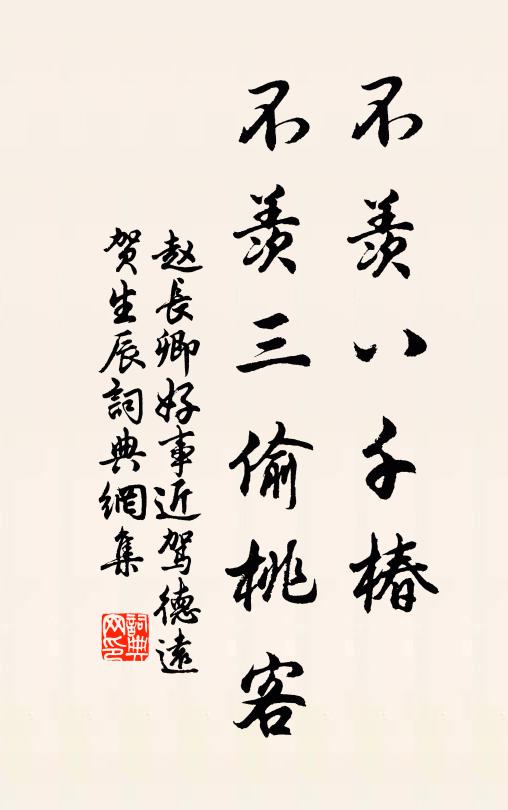 不羡八千椿
不羡三偷桃客
赵長卿好事近駕德遠
贺生辰詞典網集
詞典网印